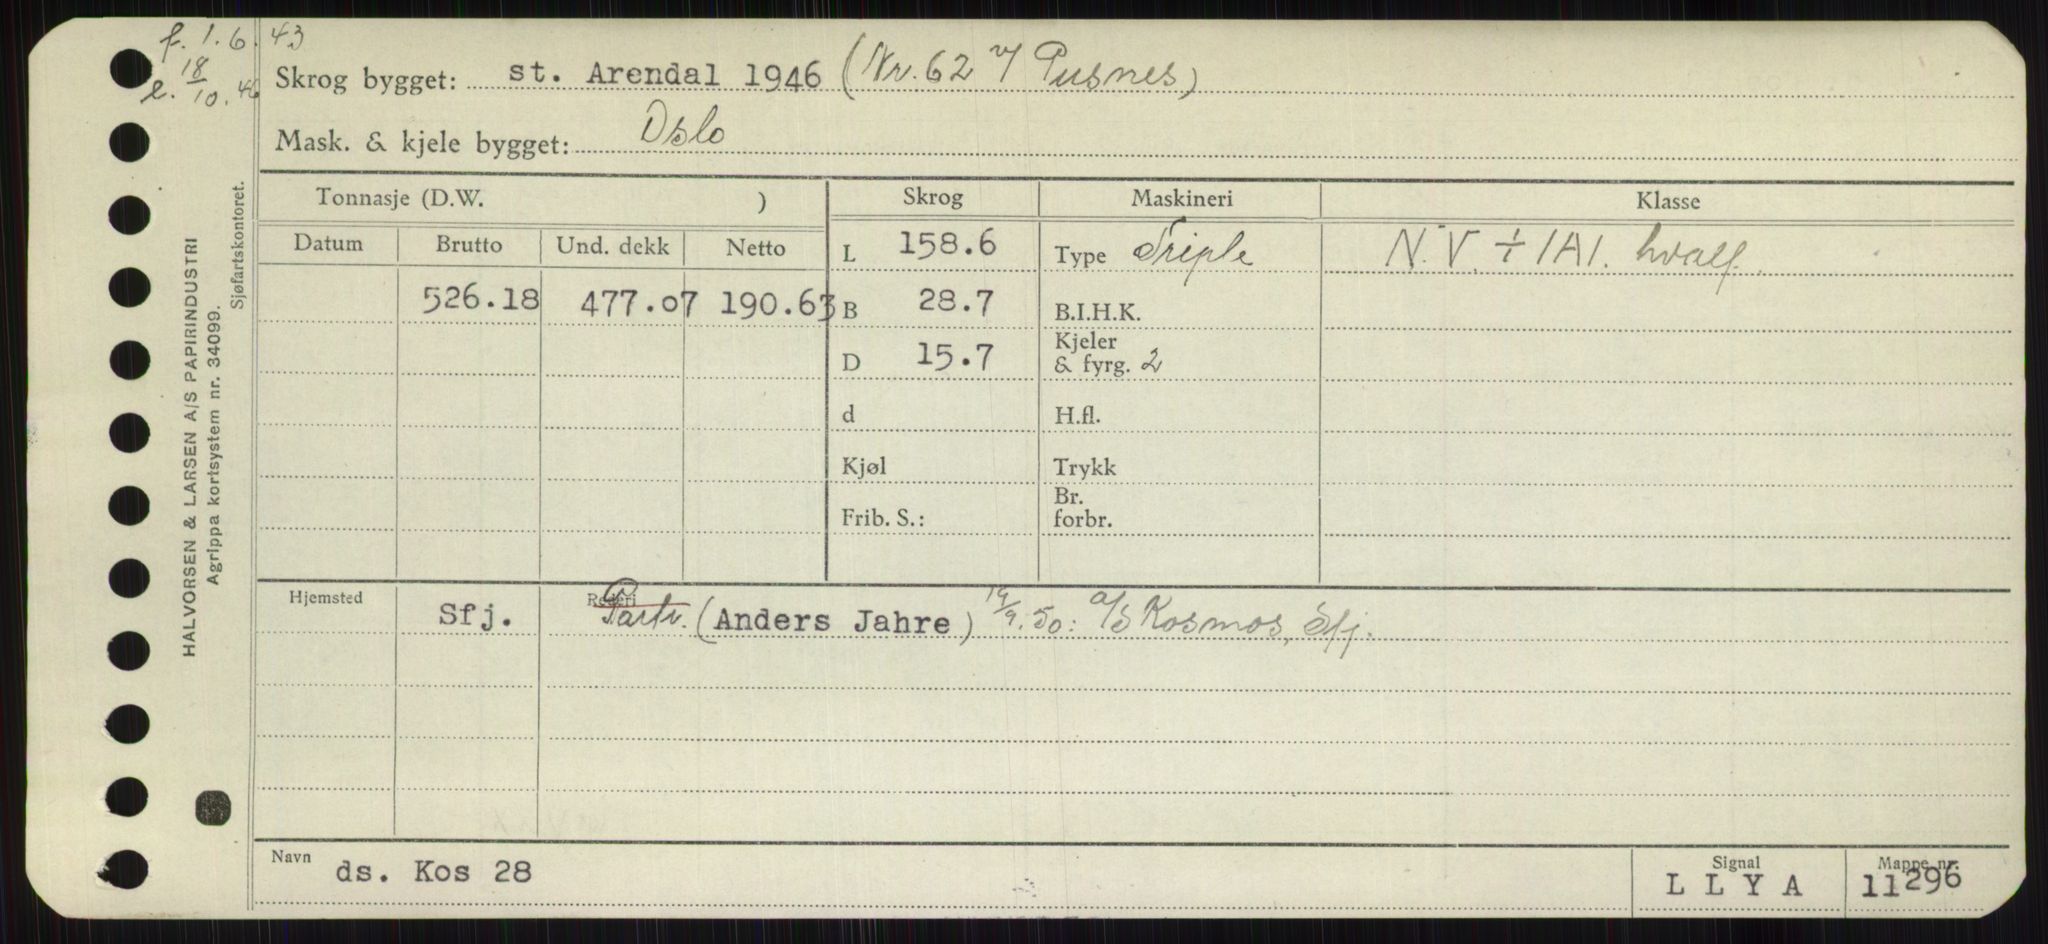 f. 1.6.43
l. 18/10.46
Skrog bygget: st. Arendal 1946 (Nr. 62 v/ Pusnes)
Mask. & kjele bygget: Oslo
Tonnasje (D.W. ) Skrog Maskineri Klasse
Datum Brutto Und. dekk Netto
L 158.6 Type Triple N.V. ÷ 1A1. hvalf.
526.18 477.07 190.63 B 28.7 B.I.H.K.
D 15.7 Kjeler & fyrg. 2
d H.fl.
Kjøl Trykk
Frib. S.: Br. forbr.
Hjemsted Rederi
Sfj. Partr. (Anders Jahre) 14/9.50: A/S Kosmos, Sfj.
Navn ds. Kos 28 Signal L L Y A Mappe nr. 11296
HALVORSEN & LARSEN A/S PAPIRINDUSTRI
Agrippa kortsystem nr. 34099.
Sjøfartskontoret.